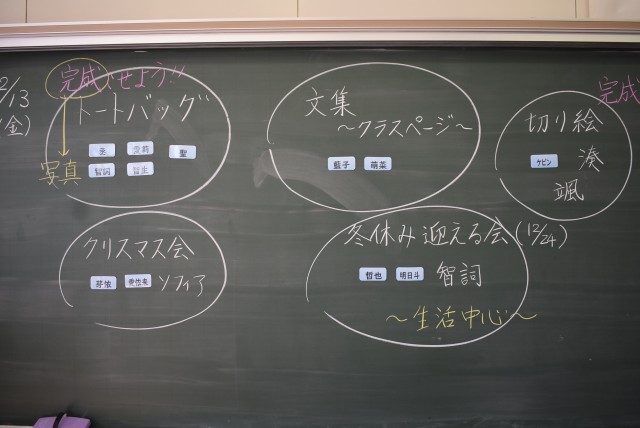 12/13
(金)
完成させよう!!
トートバッグ
聖
智詞
写真
文集
〜クラスページ〜
藍子 萌菜
完成
切り絵
ケビン 湊
颯
クリスマス会
芽依 ソフィア
冬休み迎える会(12/24)
哲也 明日斗 智詞
〜生活中心〜